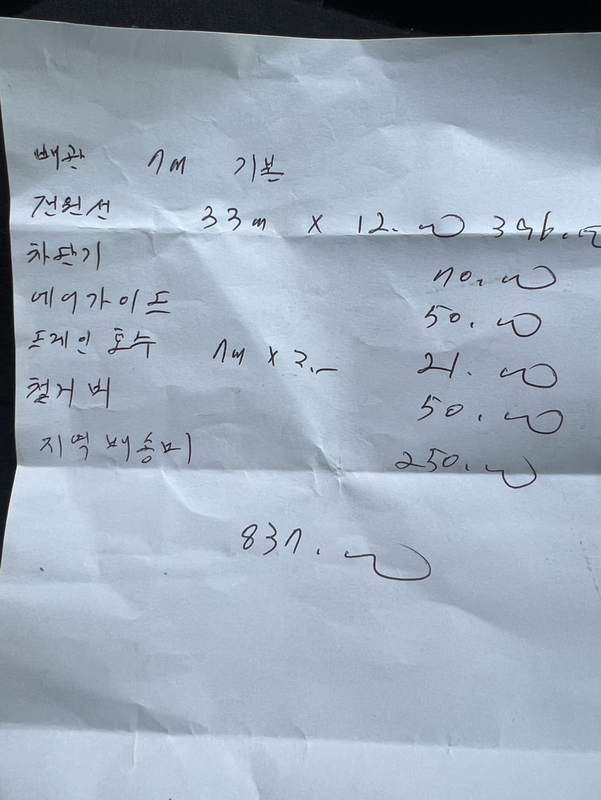 배관 7m 기본
전원선 33m x 12.000 396.000
차단기 70.000
에어가이드 50.000
드레인 호수 7m x 3.- 21.000
철거비 50.000
지역 배송비 250.000
837.000